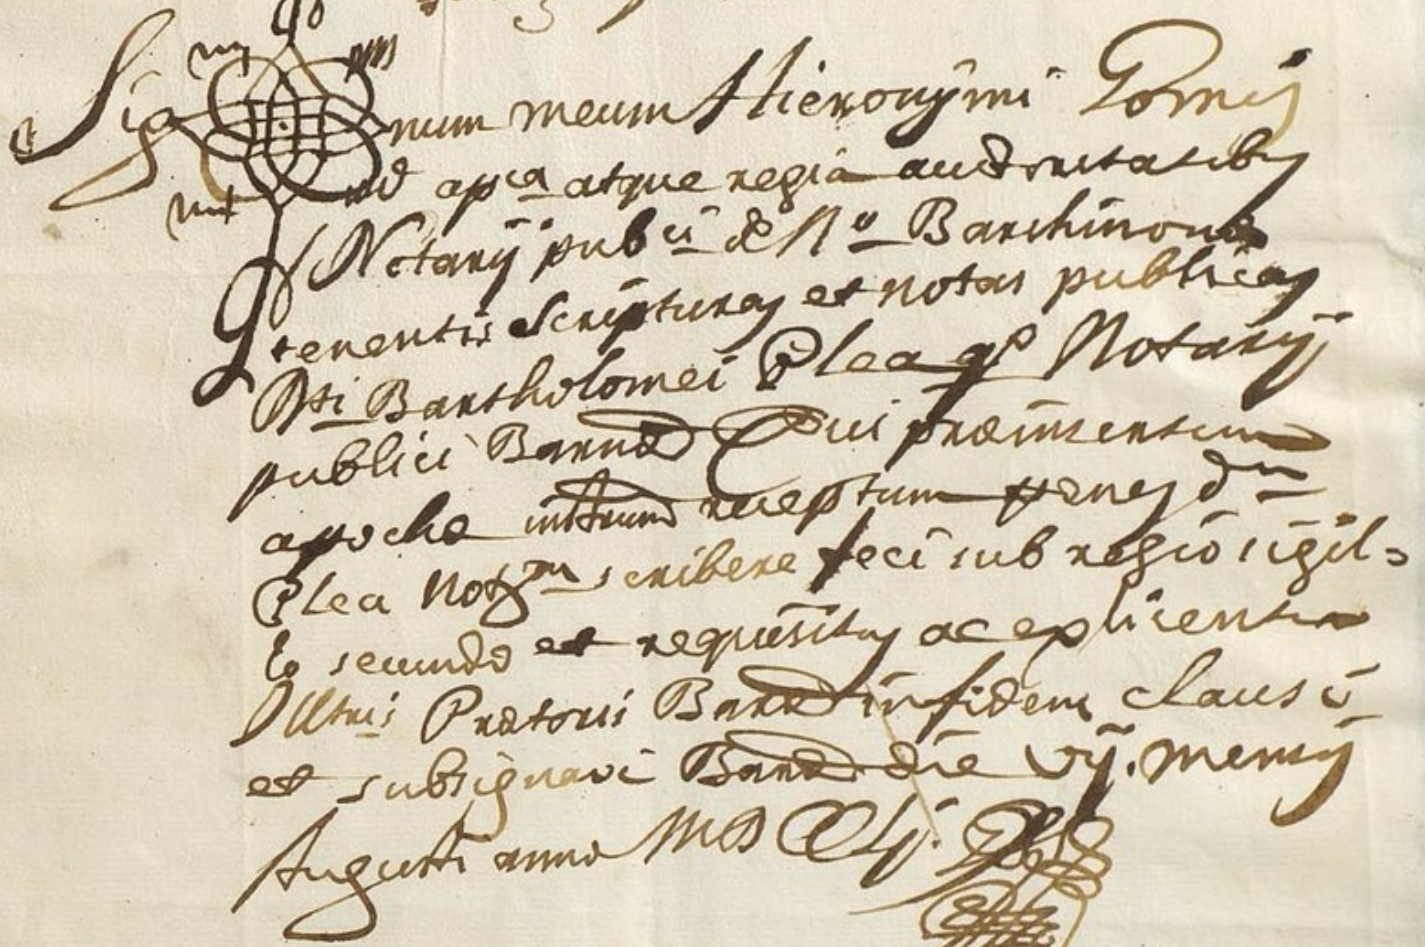 Sig num meum Hieronymi Gomis
apca atque regia auctoritatibus
Notarij pubci de No Barchinone
tenentis Scripturas et notas publicas
Dti Bartholomei Plea qo Notarij
publici Barne Qui præinsertum
apoche instrum receptum penes dm
Plea Notm scribere feci sub regio sigil=
lo secundo et requisitus ac explicentia
Illtris Prætoris Barne in fidem clausi
et subsignavi Barne die vij. mensis
Augusti anno MDCLj.